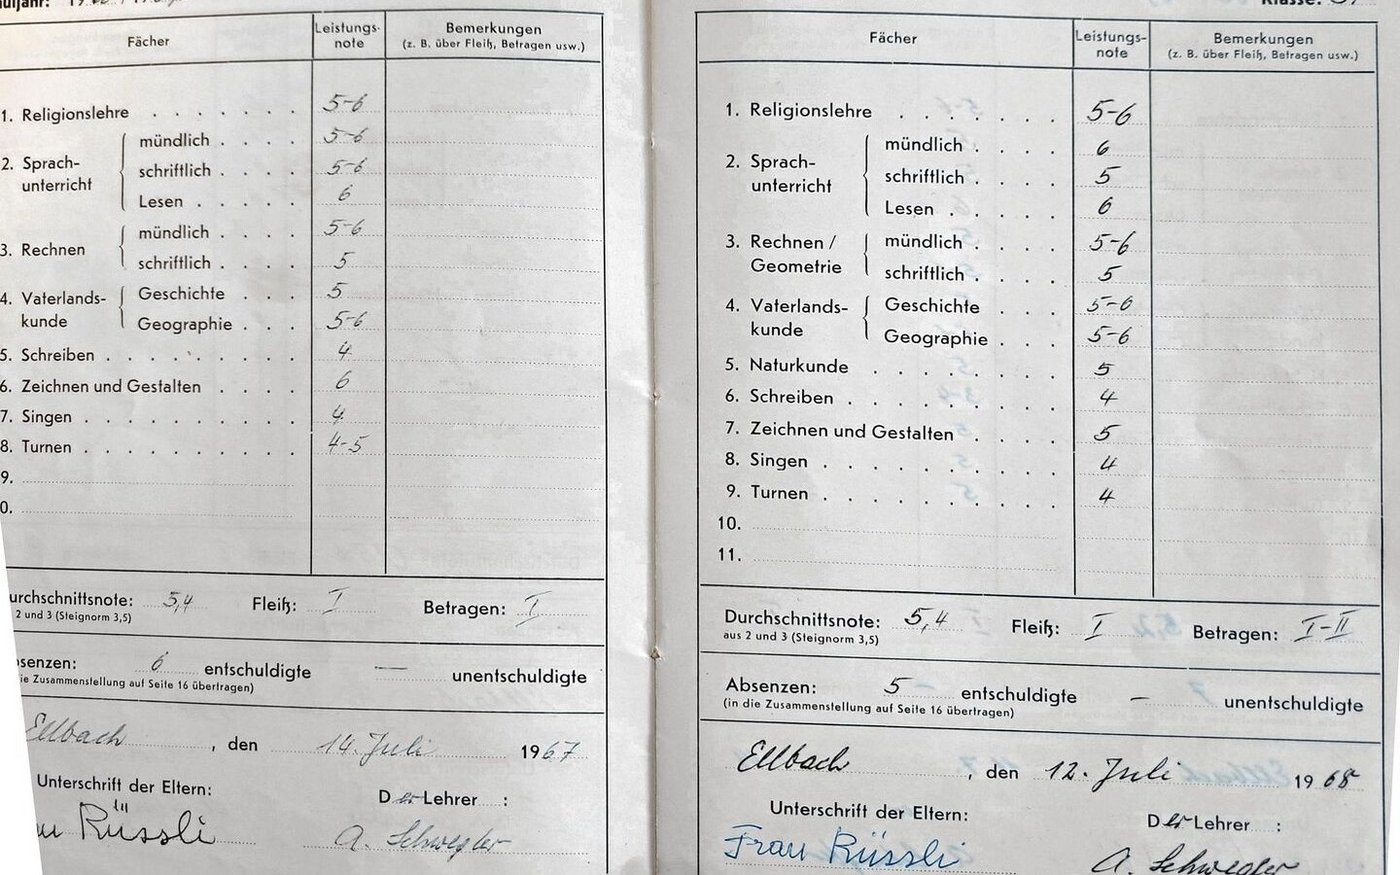 Fächer Leistungs-note Bemerkungen
(z. B. über Fleiß, Betragen usw.)
1. Religionslehre 5-6
2. Sprach-unterricht mündlich 5-6
schriftlich 5-6
Lesen 6
3. Rechnen mündlich 5-6
schriftlich 5
4. Vaterlands-kunde Geschichte 5
Geographie 5-6
5. Schreiben 4
6. Zeichnen und Gestalten 6
7. Singen 4
8. Turnen 4-5
9.
0.
urchschnittsnote: 5,4 Fleiß: I Betragen: I
2 und 3 (Steignorm 3,5)
senzen: 6 entschuldigte — unentschuldigte
ie Zusammenstellung auf Seite 16 übertragen)
Ellbach, den 14. Juli 1967
Unterschrift der Eltern: Der Lehrer :
Rüssli A. Schwegler
Klasse:
Fächer Leistungs-note Bemerkungen
(z. B. über Fleiß, Betragen usw.)
1. Religionslehre 5-6
2. Sprach-unterricht mündlich 6
schriftlich 5
Lesen 6
3. Rechnen / Geometrie mündlich 5-6
schriftlich 5
4. Vaterlands-kunde Geschichte 5-6
Geographie 5-6
5. Naturkunde 5
6. Schreiben 4
7. Zeichnen und Gestalten 5
8. Singen 4
9. Turnen 4
10.
11.
Durchschnittsnote: 5,4 Fleiß: I Betragen: I-II
aus 2 und 3 (Steignorm 3,5)
Absenzen: 5 entschuldigte — unentschuldigte
(in die Zusammenstellung auf Seite 16 übertragen)
Ellbach, den 12. Juli 1968
Unterschrift der Eltern: Der Lehrer :
Frau Rüssli A. Schwegler